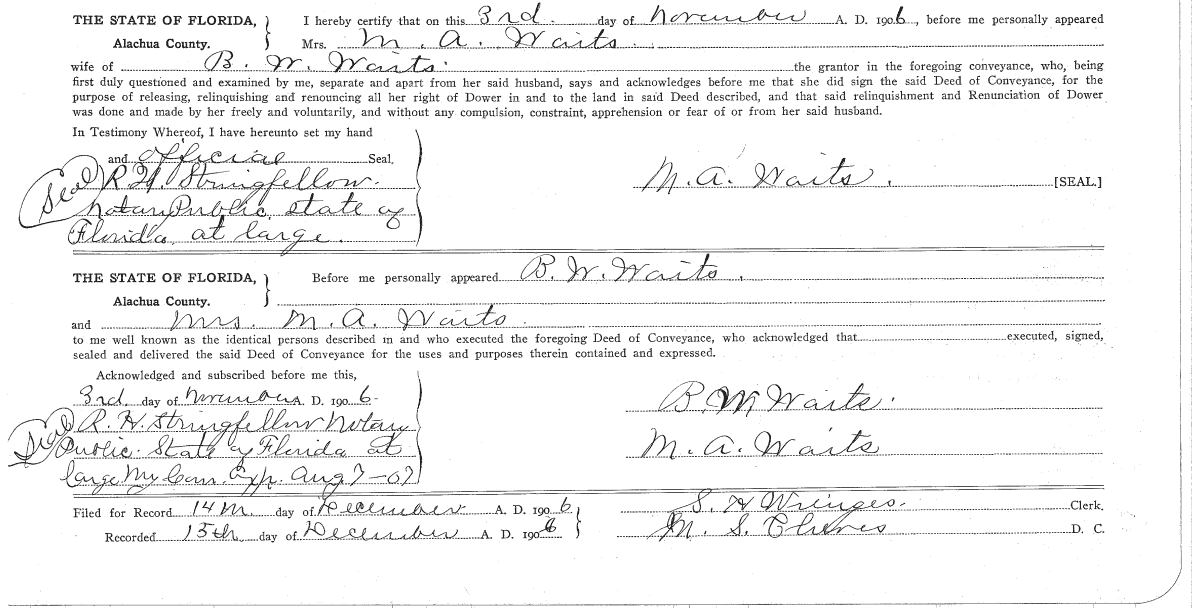 THE STATE OF FLORIDA, } I hereby certify that on this 3rd. day of November A. D. 1906, before me personally appeared
Alachua County. Mrs. M. A. Waits.
wife of B. W. Waits. the grantor in the foregoing conveyance, who, being
first duly questioned and examined by me, separate and apart from her said husband, says and acknowledges before me that she did sign the said Deed of Conveyance, for the
purpose of releasing, relinquishing and renouncing all her right of Dower in and to the land in said Deed described, and that said relinquishment and Renunciation of Dower
was done and made by her freely and voluntarily, and without any compulsion, constraint, apprehension or fear of or from her said husband.
In Testimony Whereof, I have hereunto set my hand
and official Seal.
(Seal) R. H. Stringfellow.
M. A. Waits. [SEAL.]
Notary Public, state of
Florida, at large.
THE STATE OF FLORIDA, } Before me personally appeared B. W. Waits.
Alachua County.
and Mrs. M. A. Waits.
to me well known as the identical persons described in and who executed the foregoing Deed of Conveyance, who acknowledged that executed, signed,
sealed and delivered the said Deed of Conveyance for the uses and purposes therein contained and expressed.
Acknowledged and subscribed before me this,
3rd. day of November A. D. 1906-
B. W Waits.
(Seal) R. H. Stringfellow Notary
Public. State of Florida at
M. A. Waits
large My Com. Exp. Aug 7-07
Filed for Record 14 day of December A. D. 1906 } S. H. Clerk.
Recorded 15th day of December A. D. 1906 M. S. D. C.